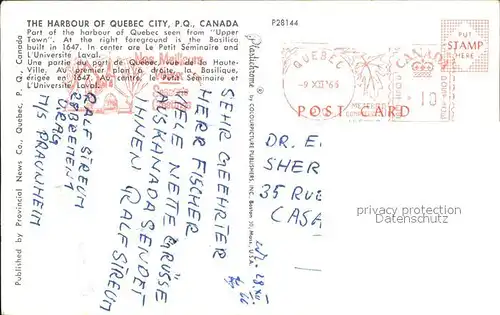 THE HARBOUR OF QUEBEC CITY, P.Q., CANADA
Part of the harbour of Quebec seen from "Upper
Town". At the right foreground is the Basilica
built in 1647. In center are Le Petit Séminaire and
L'Universite Laval.
Une partie du port de Québec, vue de la Haute-
Ville. Au premier plan à droite, la Basilique,
érigée en 1647. Au centre, le Petit Séminaire et
L'Université Laval.
P28144
QUEBEC
-9 XII '66
CANADA
10
PUT
STAMP
HERE
POST CARD
Published by Provincial News Co., Quebec, P. Q., Canada
Plastichrome ® by COLOURPICTURE PUBLISHERS, INC. Boston 30, Mass. U.S.A.
SEHR GEEHRTER
HERR FISCHER
VIELE NETTE GRÜSSE
AUS KANADA SENDET
IHNEN RALF SIREUM
RALF SIREUM
M/S PRAUNHEIM
DR. E.
SHER
35 RUE
CASA
privacy protection
VDMedien24.com